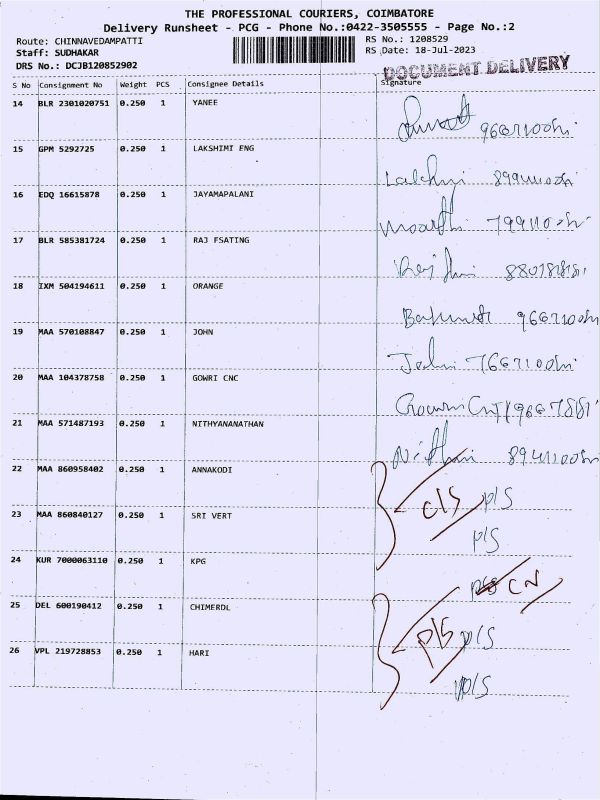 THE PROFESSIONAL COURIERS, COIMBATORE
Delivery Runsheet - PCG - Phone No.:0422-3505555 - Page No.:2
Route: CHINNAVEDAMPATTI RS No.: 1208529
Staff: SUDHAKAR RS Date: 18-Jul-2023
DRS No.: DCJB120852902 DOCUMENT DELIVERY
S No Consignment No Weight PCS Consignee Details Signature
14 BLR 2301020751 0.250 1 YANEE
15 GPM 5292725 0.250 1 LAKSHIMI ENG
Lakshmi
16 EDQ 16615878 0.250 1 JAYAMAPALANI
17 BLR 585381724 0.250 1 RAJ FSATING
18 IXM 504194611 0.250 1 ORANGE
19 MAA 570108847 0.250 1 JOHN
John
20 MAA 104378758 0.250 1 GOWRI CNC
21 MAA 571487193 0.250 1 NITHYANANATHAN
22 MAA 860958402 0.250 1 ANNAKODI
C/S P/S
23 MAA 860840127 0.250 1 SRI VERT
P/S
24 KUR 7000063110 0.250 1 KPG
CN
25 DEL 600190412 0.250 1 CHIMERDL
P/S P/S
26 VPL 219728853 0.250 1 HARI
P/S